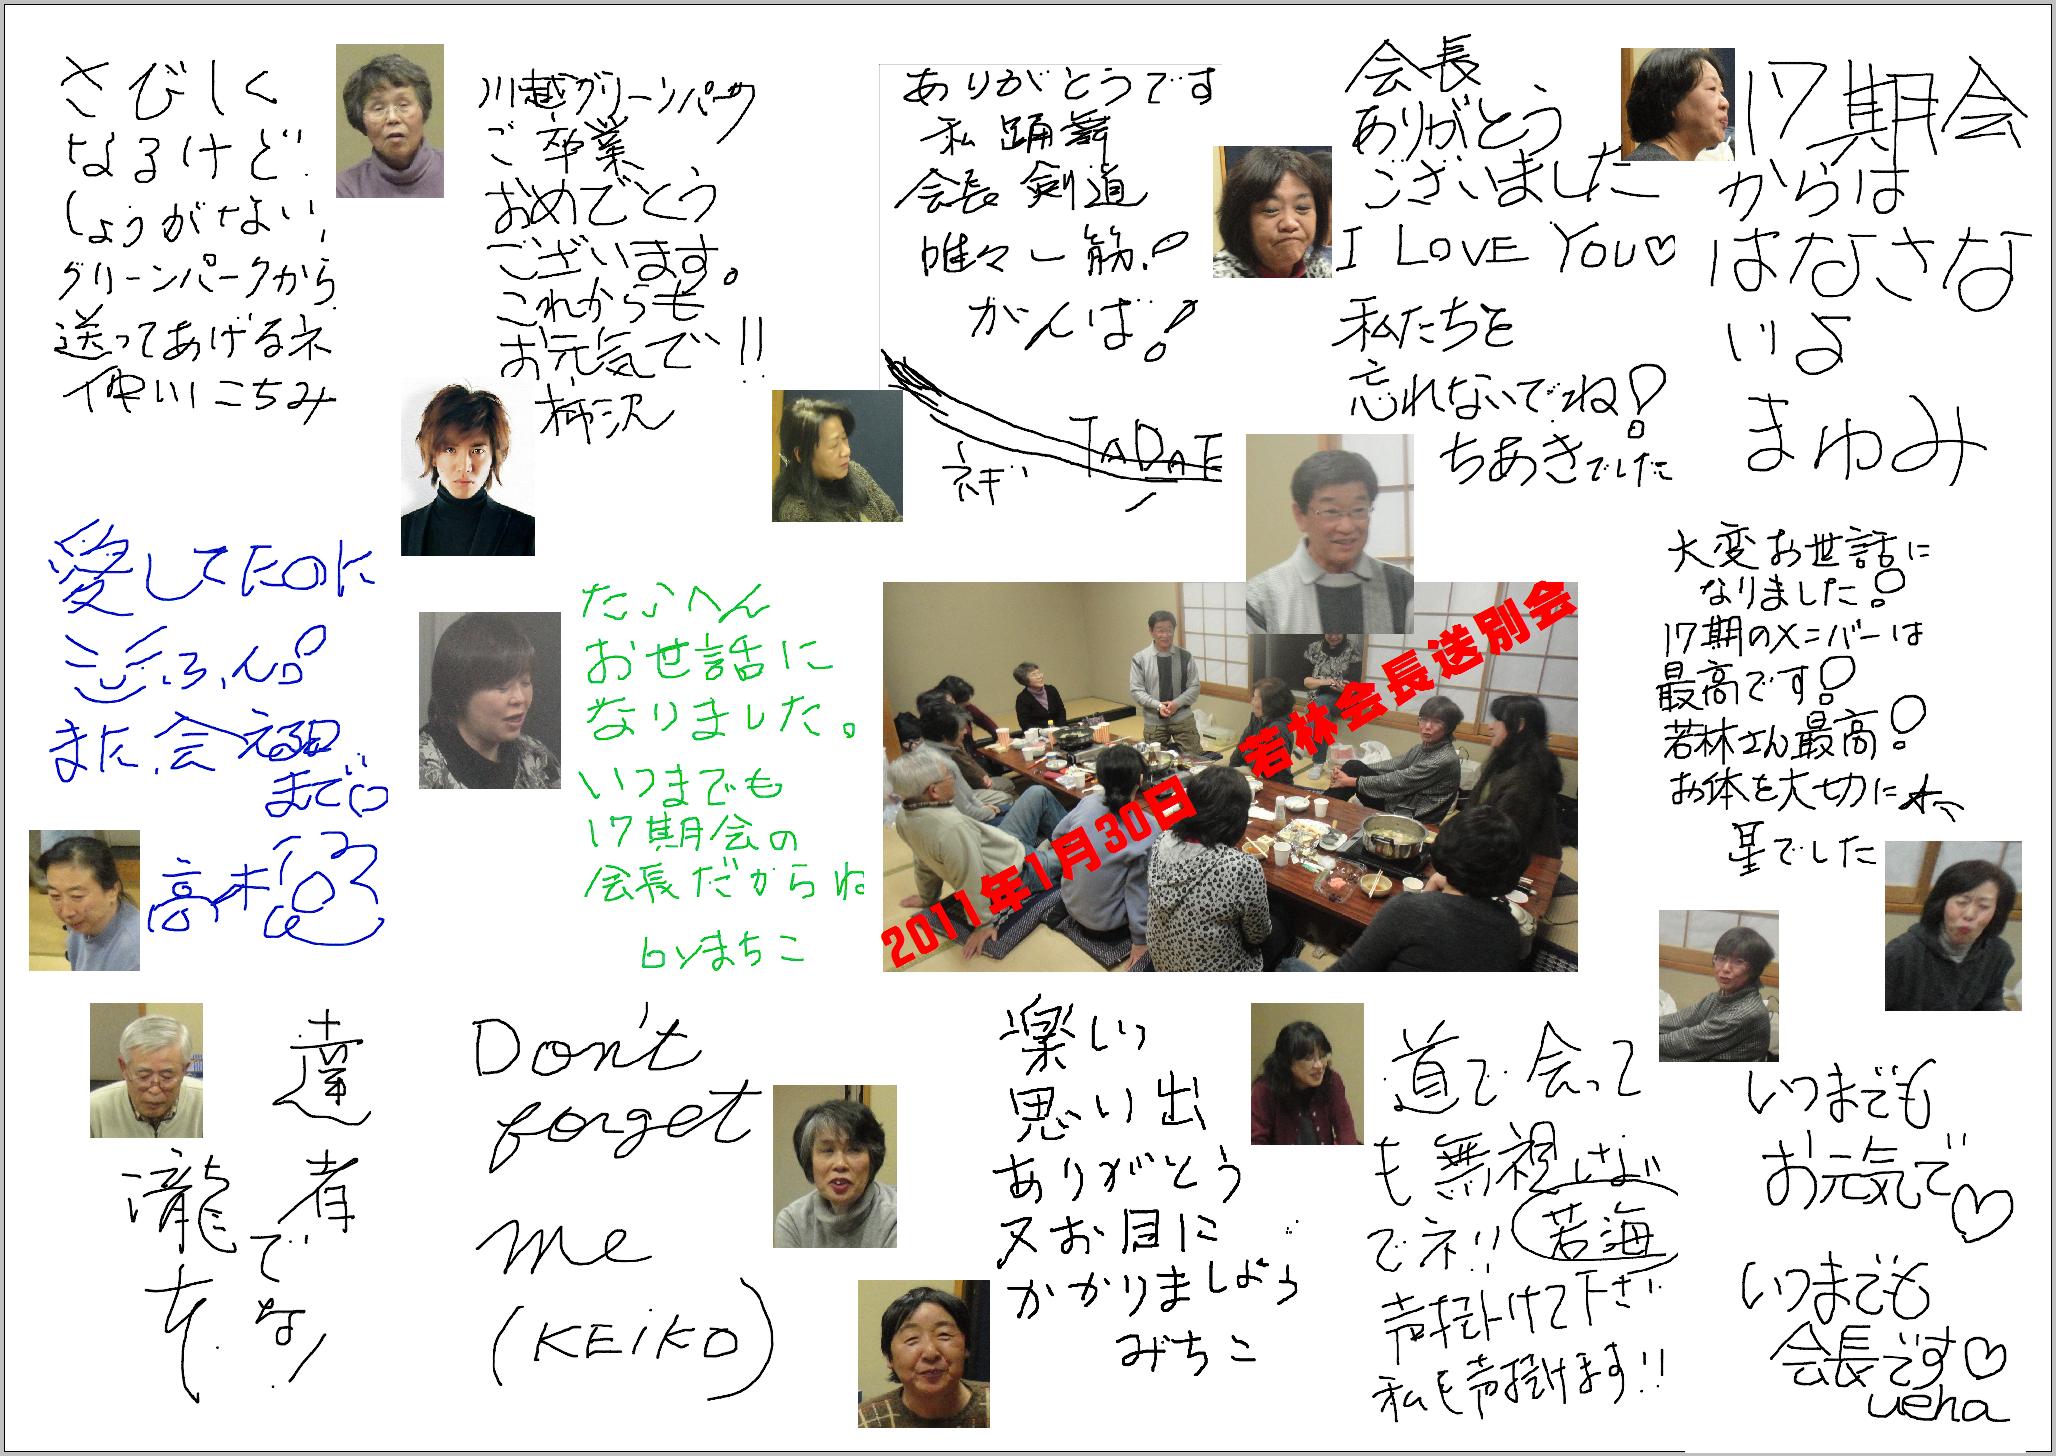 さびしく
なるけど
しょうがない
グリーンパークから
送ってあげるネ
川越グリーンパーク
ご卒業
おめでとう
ございます。
これからも
お元気で!!
柿沢
ありがとうです
私 踊舞
会長 剣道
唯々一筋!
がんば!
ネギ TADAE
会長
ありがとう
ございました
I LOVE YOU♡
私たちを
忘れないでね!
ちあきでした
17期会
からは
はなさな
いよ
まゆみ
愛してたのに
また会える日
まで
高木
たいへん
お世話に
なりました。
いつまでも
17期会の
会長だからね
byまちこ
2011年1月30日 若林会長送別会
大変お世話に
なりました!
17期のメンバーは
最高です!
若林さん最高!
お体を大切に
星でした
達者でな
瀧本
Don't
forget
me
(KEIKO)
楽しい
思い出
ありがとう
又お目に
かかりましょう
みちこ
道で会って
も無視しない
でネ!!
若海
声掛けて下さい
私も声掛けます!!
いつまでも
お元気で♡
いつまでも
会長です♡
ueha